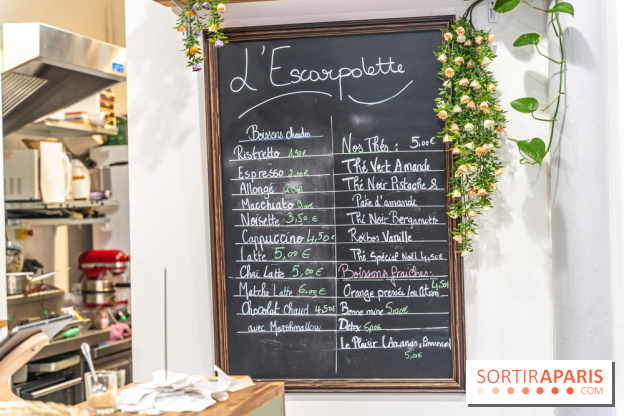 L'Escarpolette
Boissons chaudes
Ristretto 1,90€
Espresso 2,00€
Allongé
Macchiato
Noisette 3,50 €
Cappuccino 4,50€
Latte 5,00€
Chaï Latte 5,00€
Matcha Latte 6,00€
Chocolat Chaud 4,50€
avec Marshmallow
Nos Thés : 5,00€
Thé Vert Amande
Thé Noir Pistache &
Pâte d'amande
Thé Noir Bergamotte
Roïbos Vanille
Thé Spécial Noël 4,50€
Boissons fraîches:
Orange pressée /ou Atom 4,50€
Bonne mine 5,00€
Detox 5,00€
Le Plaisir (Ananas, Pommes)
5,00€
SORTIRAPARIS
.COM